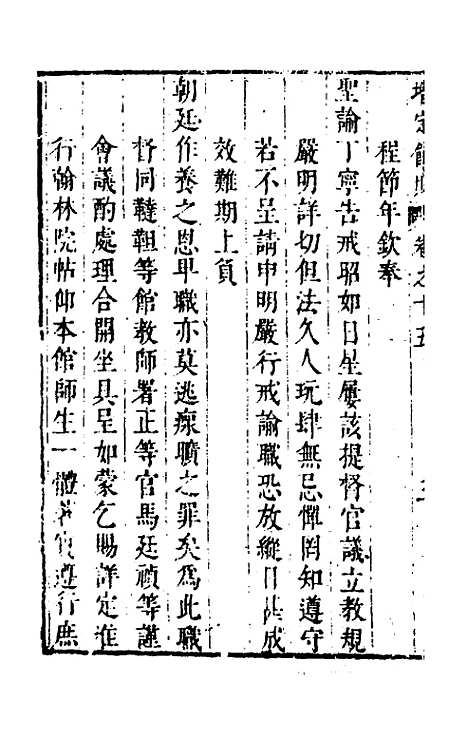 增定館則 卷之十五
程節年欽奉
聖諭丁寧告戒昭如日星屢該提督官議立教規
嚴明詳切但法久人玩肆無忌憚罔知遵守
若不呈請申明嚴行戒諭職恐放縱日甚成
效難期上負
朝廷作養之恩卑職亦莫逃瘝曠之罪矣為此職
督同韃靼等館教師署正等官馬廷禎等謹
會議酌處理合開坐具呈如蒙乞賜詳定准
行翰林院帖仰本館師生一體著實遵行庶